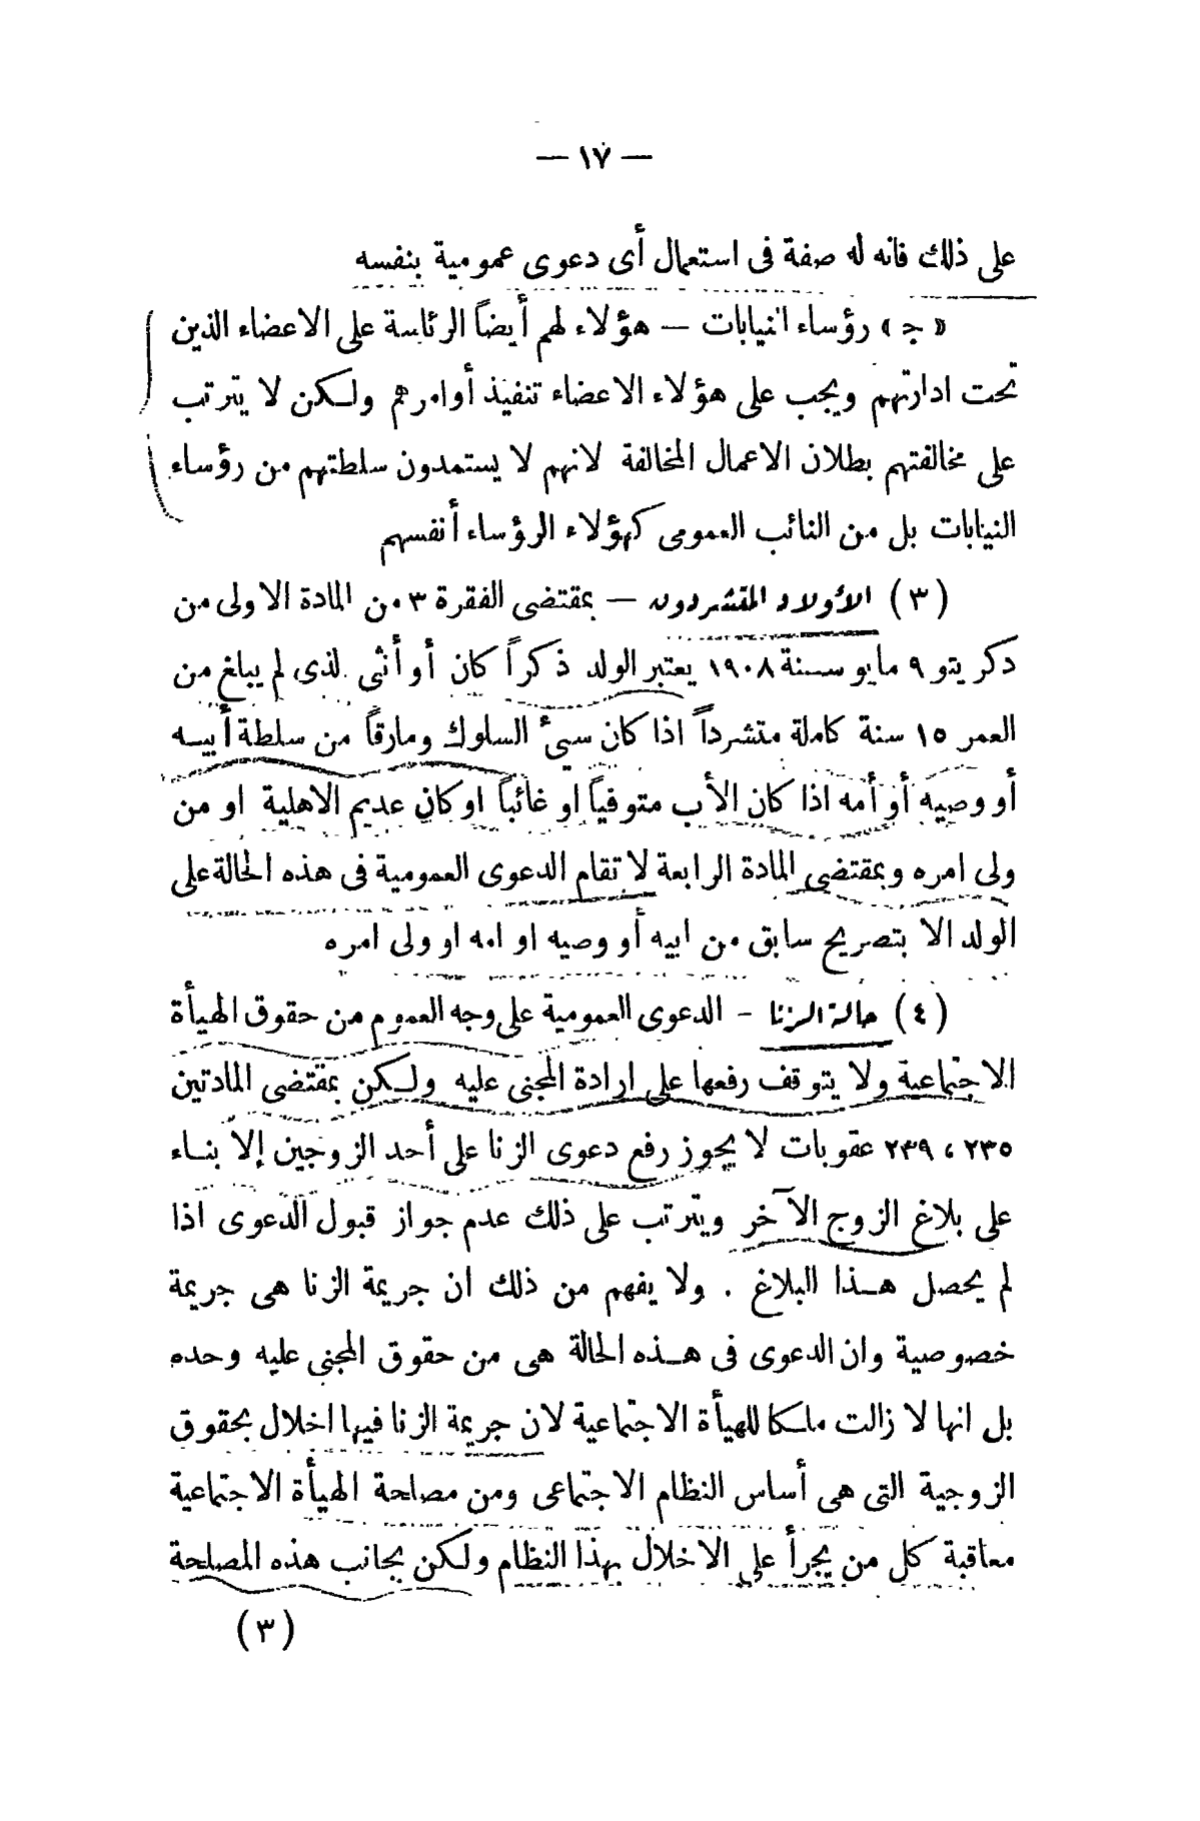 — ١٧ —
على ذلك فانه له صفة فى استعمال أى دعوى عمومية بنفسه
« ج » رؤساء النيابات — هؤلاء لهم أيضاً الرئاسة على الاعضاء الذين
تحت ادارتهم ويجب على هؤلاء الاعضاء تنفيذ أوامرهم ولكن لا يترتب
على مخالفتهم بطلان الاعمال المخالفة لانهم لا يستمدون سلطتهم من رؤساء
النيابات بل من النائب العمومى كهؤلاء الرؤساء أنفسهم
(٣) الأولاد المتشردون — بمقتضى الفقرة ٣ من المادة الاولى من
دكريتو ٩ مايو سنة ١٩٠٨ يعتبر الولد ذكراً كان أو أنثى لذى لم يبلغ من
العمر ١٥ سنة كاملة متشرداً اذا كان سيئ السلوك ومارقاً من سلطة أبيه
أو وصيه أو أمه اذا كان الأب متوفياً او غائباً او كان عديم الاهلية او من
ولى امره وبمقتضى المادة الرابعة لا تقام الدعوى العمومية فى هذه الحالة على
الولد الا بتصريح سابق من ابيه أو وصيه او امه او ولى امره
(٤) حالة الزنا - الدعوى العمومية على وجه العموم من حقوق الهيأة
الاجتماعية ولا يتوقف رفعها على ارادة المجنى عليه ولكن بمقتضى المادتين
٢٣٥ ، ٢٣٩ عقوبات لا يجوز رفع دعوى الزنا على أحد الزوجين إلا بناء
على بلاغ الزوج الآخر ويترتب على ذلك عدم جواز قبول الدعوى اذا
لم يحصل هذا البلاغ . ولا يفهم من ذلك ان جريمة الزنا هى جريمة
خصوصية وان الدعوى فى هذه الحالة هى من حقوق المجنى عليه وحده
بل انها لا زالت ملكا للهيأة الاجتماعية لان جريمة الزنا فيها اخلال بحقوق
الزوجية التى هى أساس النظام الاجتماعى ومن مصلحة الهيأة الاجتماعية
معاقبة كل من يجرأ على الاخلال بهذا النظام ولكن بجانب هذه المصلحة
(٣)